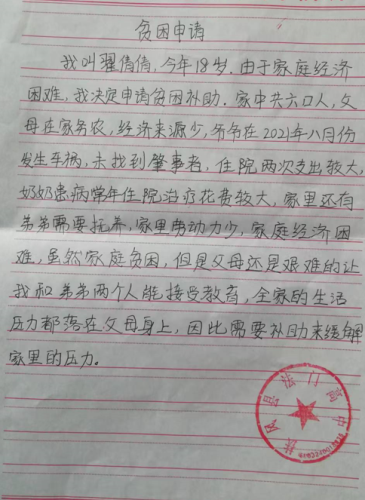 贫困申请
我叫翟倩倩,今年18岁.由于家庭经济
困难,我决定申请贫困补助.家中共六口人,父
母在家务农,经济来源少,爷爷在2021年八月份
发生车祸,未找到肇事者,住院两次支出较大,
奶奶患病常年住院治疗花费较大,家里还有
弟弟需要抚养,家里劳动力少,家庭经济困
难,虽然家庭贫困,但是父母还是艰难的让
我和弟弟两个人能接受教育,全家的生活
压力都落在父母身上,因此需要补助来缓解
家里的压力.
扶风县法门高中